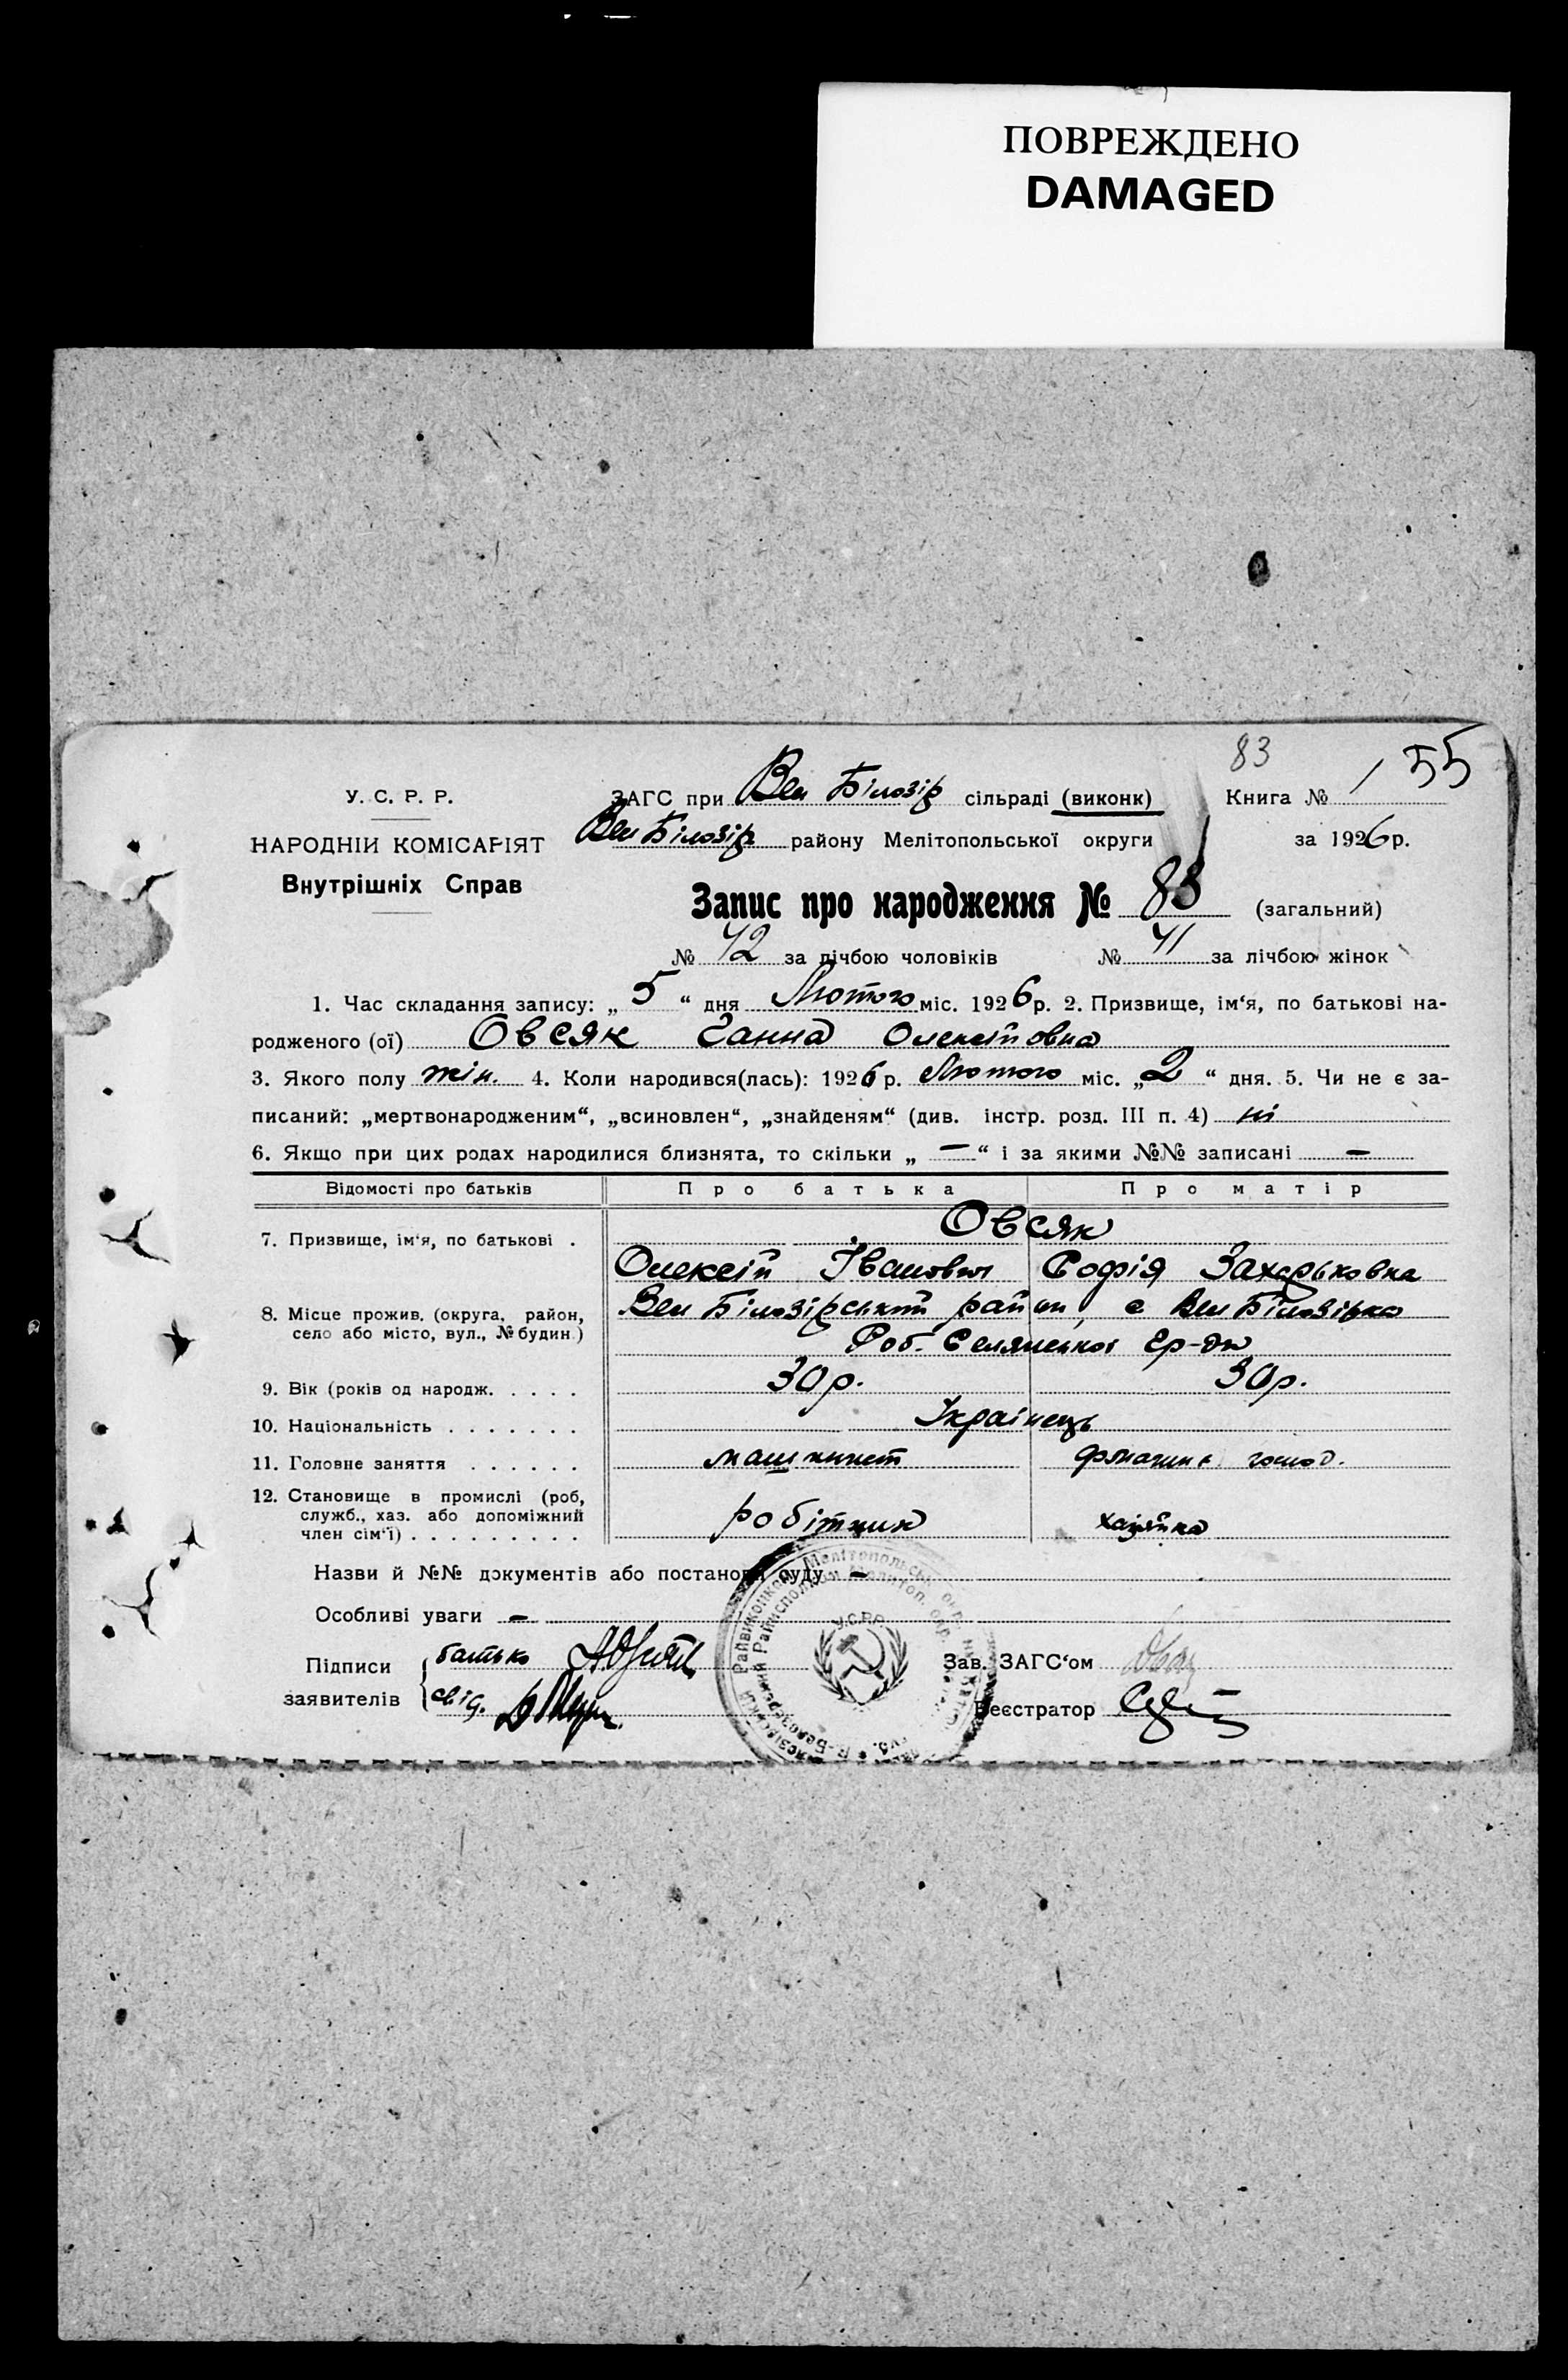 ПОВРЕЖДЕНО
DAMAGED
83
155
У. С. Р. Р.
НАРОДНІЙ КОМІСАРІЯТ
Внутрішніх Справ
ЗАГС при Вел Білозір сільраді (виконк) Книга №
Вел Білозір району Мелітопольської округи за 1926 р.
Запис про народження № 83 (загальний)
№ 42 за лічбою чоловіків № 41 за лічбою жінок
1. Час складання запису: „ 5 “ дня Лютого міс. 1926 р. 2. Призвище, ім‘я, по батькові на-
родженого (ої) Овсяк Ганна Олексіїовна
3. Якого полу жін. 4. Коли народився(лась): 1926 р. Лютого міс. „ 2 “ дня. 5. Чи не є за-
писаний: „мертвонародженим“, „всиновлен“, „знайденям“ (див. інстр. розд. III п. 4) ні
6. Якщо при цих родах народилися близнята, то скільки „ — “ і за якими №№ записані —
Відомості про батьків Про батька Про матір
7. Призвище, ім‘я, по батькові . Овсяк
Олексій Іванович Софія Захарьковна
8. Місце прожив. (округа, район, село або місто, вул., № будин.) Вел Білозірський район, с Вел Білозірка
Роб. Селянської
9. Вік (років од народж. . . . . 30 р. 30 р.
10. Національність . . . . . . . Українець
11. Головне заняття . . . . . . машинист господ.
12. Становище в промислі (роб,
служб., хаз. або допоміжний
член сім‘ї) . . . . . . . . . робітник хазяйка
Назви й №№ документів або постанови суду —
Особливі уваги —
Підписи заявителів батько
свід.
Зав. ЗАГС‘ом
Реєстратор
У.С.Р.Р.